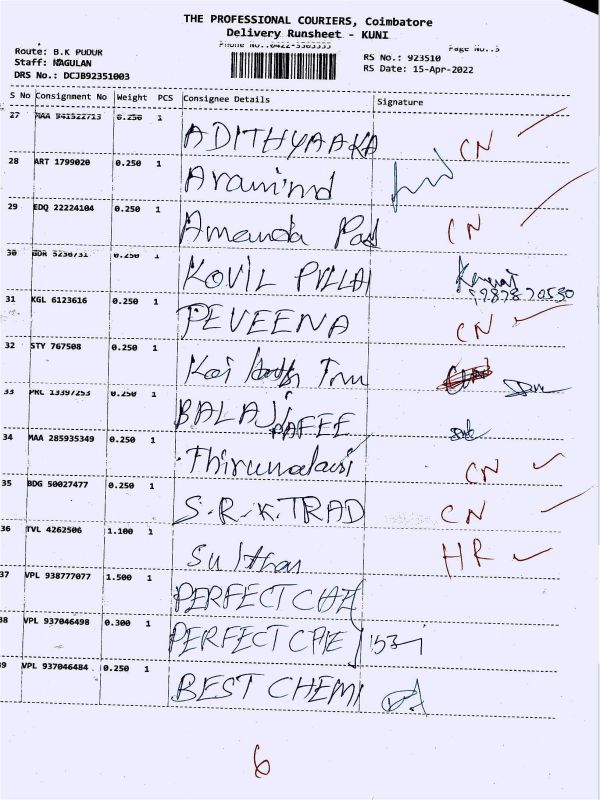 THE PROFESSIONAL COURIERS, Coimbatore
Delivery Runsheet - KUNI
Phone No.:0422-3303333 Page No.:5
Route: B.K PUDUR RS No.: 923510
Staff: NAGULAN RS Date: 15-Apr-2022
DRS No.: DCJB92351003
S No Consignment No Weight PCS Consignee Details Signature
27 MAA 941522713 0.250 1 ADITHYAAKA CN
28 ART 1799020 0.250 1 Aravinnd
29 EDQ 22224104 0.250 1 Amanda Pad CN
30 GDR 5236731 0.250 1 KOVIL PILLAI
31 KGL 6123616 0.250 1 PEVEENA CN
32 STY 767508 0.250 1 Kai Tmu
33 PKL 13397253 0.250 1 BALAJI
CAFEE
34 MAA 285935349 0.250 1 Thirumalaisi CN
35 BDG 50027477 0.250 1 S.R.K.TRAD CN
36 TVL 4262506 1.100 1 Sulthan HR
37 VPL 938777077 1.500 1 PERFECT CHE
38 VPL 937046498 0.300 1 PERFECT CHE
39 VPL 937046484 0.250 1 BEST CHEMI
6